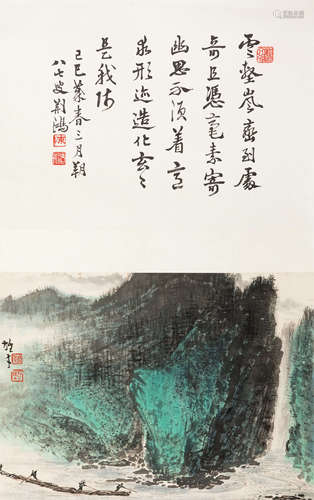 雲壑嵐齋到處
奇且憑毫素寄
幽思不須着意
求形迹造化玄〻
是我師
己巳蕤春三月朔
八七叟荊鴻